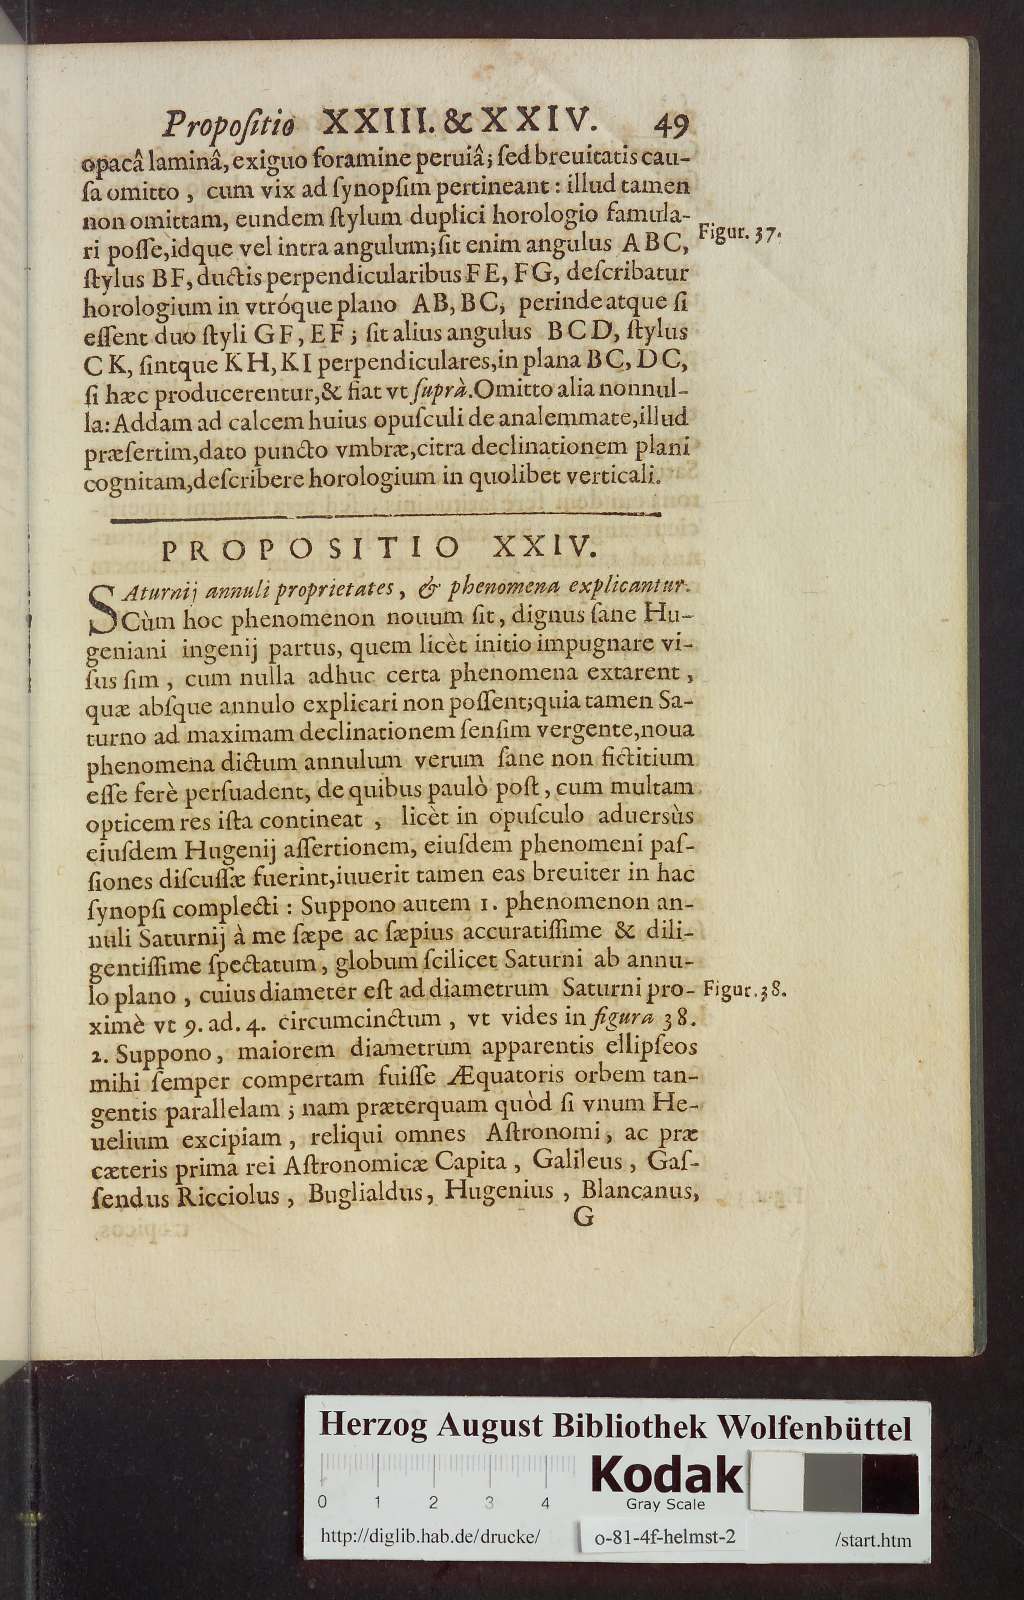 Propoſitio XXIII. & XXIV. 49
opacâ laminâ, exiguo foramine peruiâ; ſed breuitatis cau-
ſa omitto, cum vix ad ſynopſim pertineant: illud tamen
non omittam, eundem ſtylum duplici horologio famula-
ri poſſe, idque vel intra angulum; ſit enim angulus ABC,
Figur. 37.
ſtylus BF, ductis perpendicularibus FE, FG, deſcribatur
horologium in vtróque plano AB, BC, perinde atque ſi
eſſent duo ſtyli GF, EF; ſit alius angulus BCD, ſtylus
CK, ſintque KH, KI perpendiculares, in plana BC, DC,
ſi hæc producerentur, & fiat vt ſuprà. Omitto alia nonnul-
la: Addam ad calcem huius opuſculi de analemmate, illud
præſertim, dato puncto vmbræ, citra declinationem plani
cognitam, deſcribere horologium in quolibet verticali.
PROPOSITIO XXIV.
SAturnij annuli proprietates, & phenomena explicantur.
Cùm hoc phenomenon nouum ſit, dignus ſane Hu-
geniani ingenij partus, quem licèt initio impugnare vi-
ſus ſim, cum nulla adhuc certa phenomena extarent,
quæ abſque annulo explicari non poſſent; quia tamen Sa-
turno ad maximam declinationem ſenſim vergente, noua
phenomena dictum annulum verum ſane non fictitium
eſſe ferè perſuadent, de quibus paulò poſt, cum multam
opticem res iſta contineat, licèt in opuſculo aduersùs
eiuſdem Hugenij aſſertionem, eiuſdem phenomeni paſ-
ſiones diſcuſſæ fuerint, iuuerit tamen eas breuiter in hac
ſynopſi complecti: Suppono autem 1. phenomenon an-
nuli Saturnij à me ſæpe ac ſæpius accuratiſſime & dili-
gentiſſime ſpectatum, globum ſcilicet Saturni ab annu-
lo plano, cuius diameter eſt ad diametrum Saturni pro-
Figur. 38.
ximè vt 9. ad. 4. circumcinctum, vt vides in figura 38.
2. Suppono, maiorem diametrum apparentis ellipſeos
mihi ſemper compertam fuiſſe Æquatoris orbem tan-
gentis parallelam; nam præterquam quòd ſi vnum He-
uelium excipiam, reliqui omnes Aſtronomi, ac præ
cæteris prima rei Aſtronomicæ Capita, Galileus, Gaſ-
ſendus Ricciolus, Buglialdus, Hugenius, Blancanus,
G
Herzog August Bibliothek Wolfenbüttel
Kodak
Gray Scale
0 1 2 3 4
http://diglib.hab.de/drucke/ o-81-4f-helmst-2 /start.htm